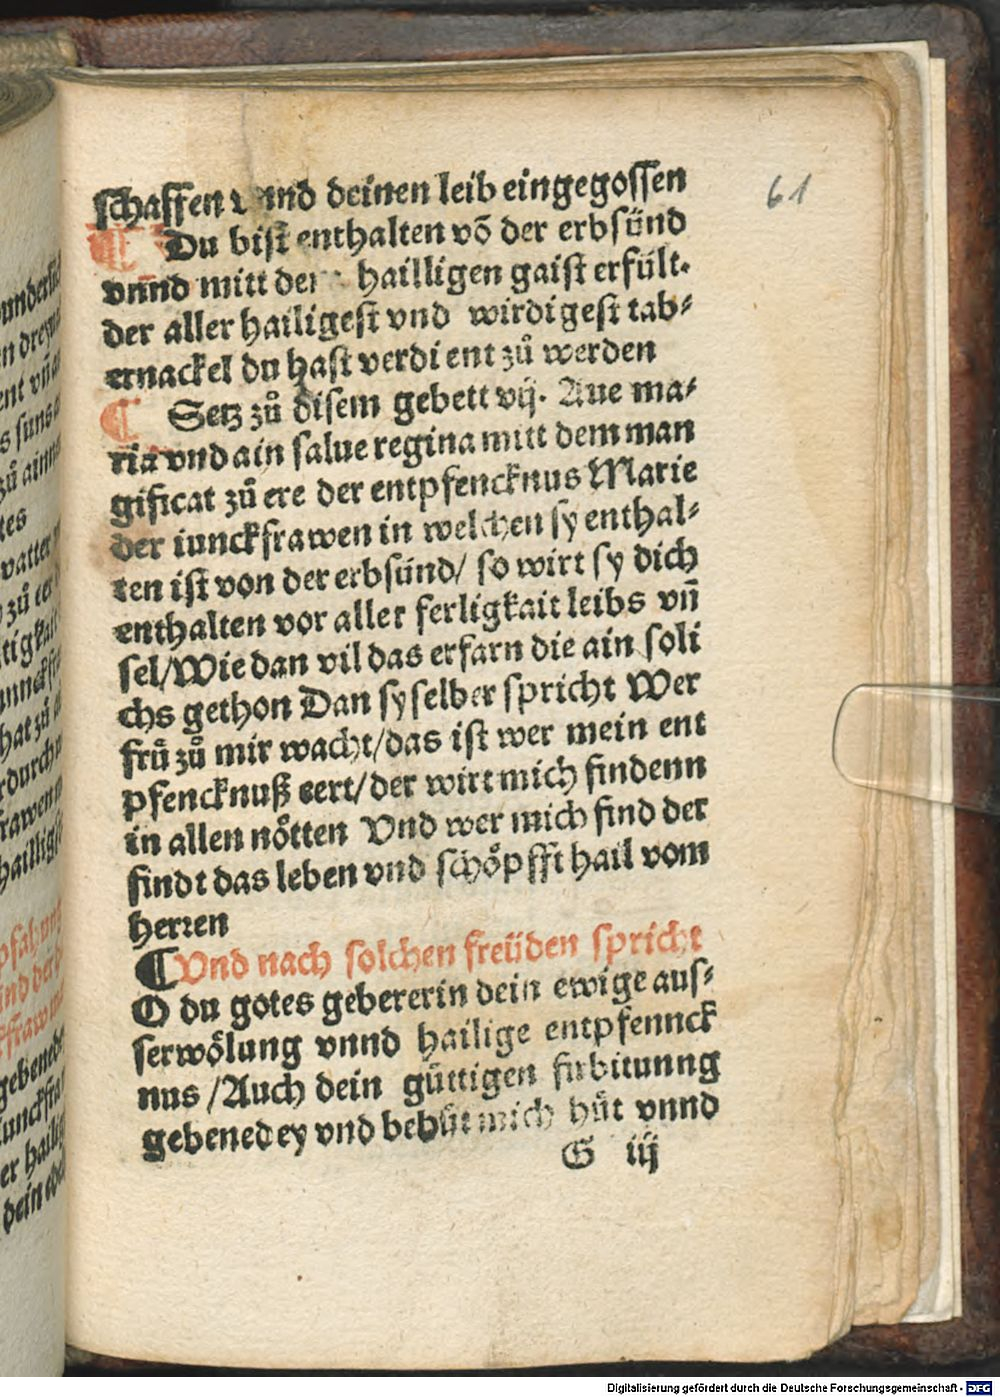 schaffen vnnd deinen leib eingegossen
Du bist enthalten võ der erbsünd
vñnd mitt dem hailligen gaist erfült.
der aller hailigest vnd wirdigest tab⸗
ernackel du hast verdient zů werden
Setz zů disem gebett vij. Aue ma⸗
ria vnd ain salue regina mitt dem man
gificat zů ere der entpfencknus Marie
der iunckfrawen in welchen sy enthal⸗
ten ist von der erbsünd/ so wirt sy dich
enthalten vor aller ferligkait leibs vñ
sel/Wie dan vil das erfarn die ain soli
chs gethon Dan sy selber spricht Wer
frů zů mir wacht/das ist wer mein ent
pfencknuß eert/der wirt mich findenn
in allen nötten Vnd wer mich find der
findt das leben vnd schöpfft hail vom
herren
Vnd nach solchen freüden spricht
O du gotes gebererin dein ewige aus⸗
serwölung vnnd hailige entpfennck
nus /Auch dein güttigen firbitunng
gebenedey vnd behüt mich hüt vnnd
G iij
61
Digitalisierung gefördert durch die Deutsche Forschungsgemeinschaft - DFG